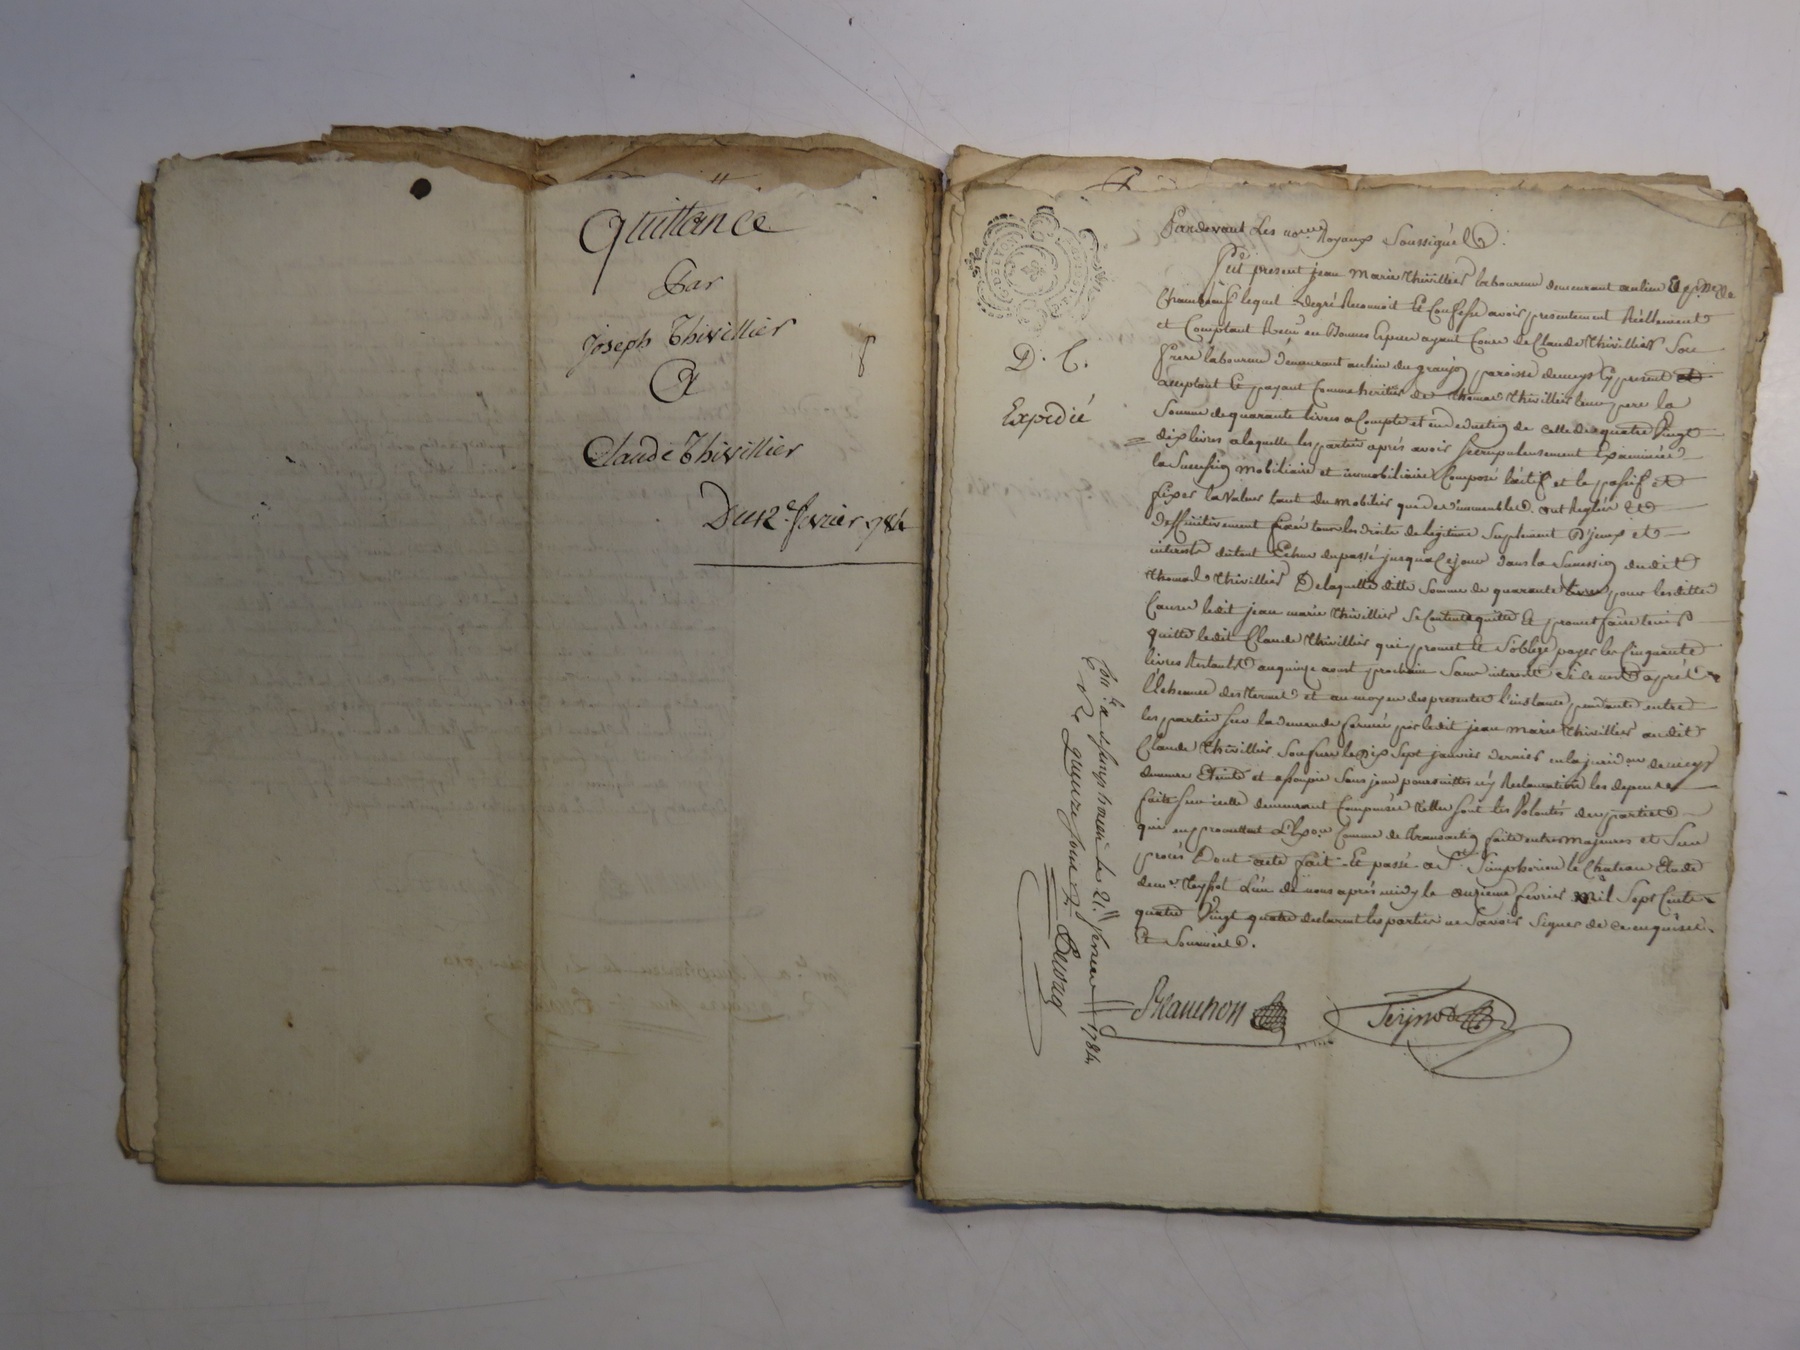 Quittance
Par
Joseph Thivillier
A
Claude Thivillier
Du 12e fevrier 784
D. C.
Expedié
Pardevant Les Royaux Soussignés
fut present jean marie thivillier laboureur demeurant au lieu
Chambeuf lequel degré Reconnoit Et Confesse avoir presentement Réellement
et Comptant Receu en Bonnes Especes ayant Cours de Claude thivillier Son
frere laboureur demeurant au lieu du granjon paroisse de meys Cy present
acceptant Et payant Comme heritier de thomas thivillier leur pere la
Somme de quarante livres a Compte et en deduction de Celle de quatre Vingt
dix livres a laquelle les parties aprés avoir Scrupuleusement Examinée
la Succession mobiliaire et immobiliaire Composé l'actif et le passif et
fixer la Valeur tant du mobilier que des immeubles ont Reglée et
deffinitivement fixé tous les droits de legitime Suplement d'jceux et
interests du tout Echeu du passé jusqu'a Ce jour dans la Succession dudit
thomas thivillier De laquelle ditte Somme de quarante livres pour les dittes
Causes ledit jean marie thivillier Se Contente quitte Et promet faire tenir
quitte ledit Claude thivillier qui promet Et S'oblige payer les Cinquante
livres Restants au quinze aoust prochain Sans interests Si Ce n'est aprés
l'Echeance des termes et au moyen des presentes l'instance pendante entre
les parties Sur la demande formée par ledit jean marie thivillier audit
Claude thivillier Son frere le Dix Sept janvier dernier en la jurid.on de meys
demeure Eteinte et assoupie Sans jcean poursuittes ny Reclamation les depens
faits Sur icelle demeurant Compensés telles Sont les Volontés des parties
qui en promettent L'Exon. Comme de transaction faite entre majeurs et Sur
procés Dont acte fait Et passé a St. Simphorien le Chateau Etude
de me. L'un de nous aprés midy le douzieme fevrier mil Sept Cents
quatre Vingt quatre declarent les parties ne Savoir Signer de ce enquises
Et Sommées.
Blanchon
Con.lé a St Simphorien le 21 fevrier 1784
R. Quinze Sous